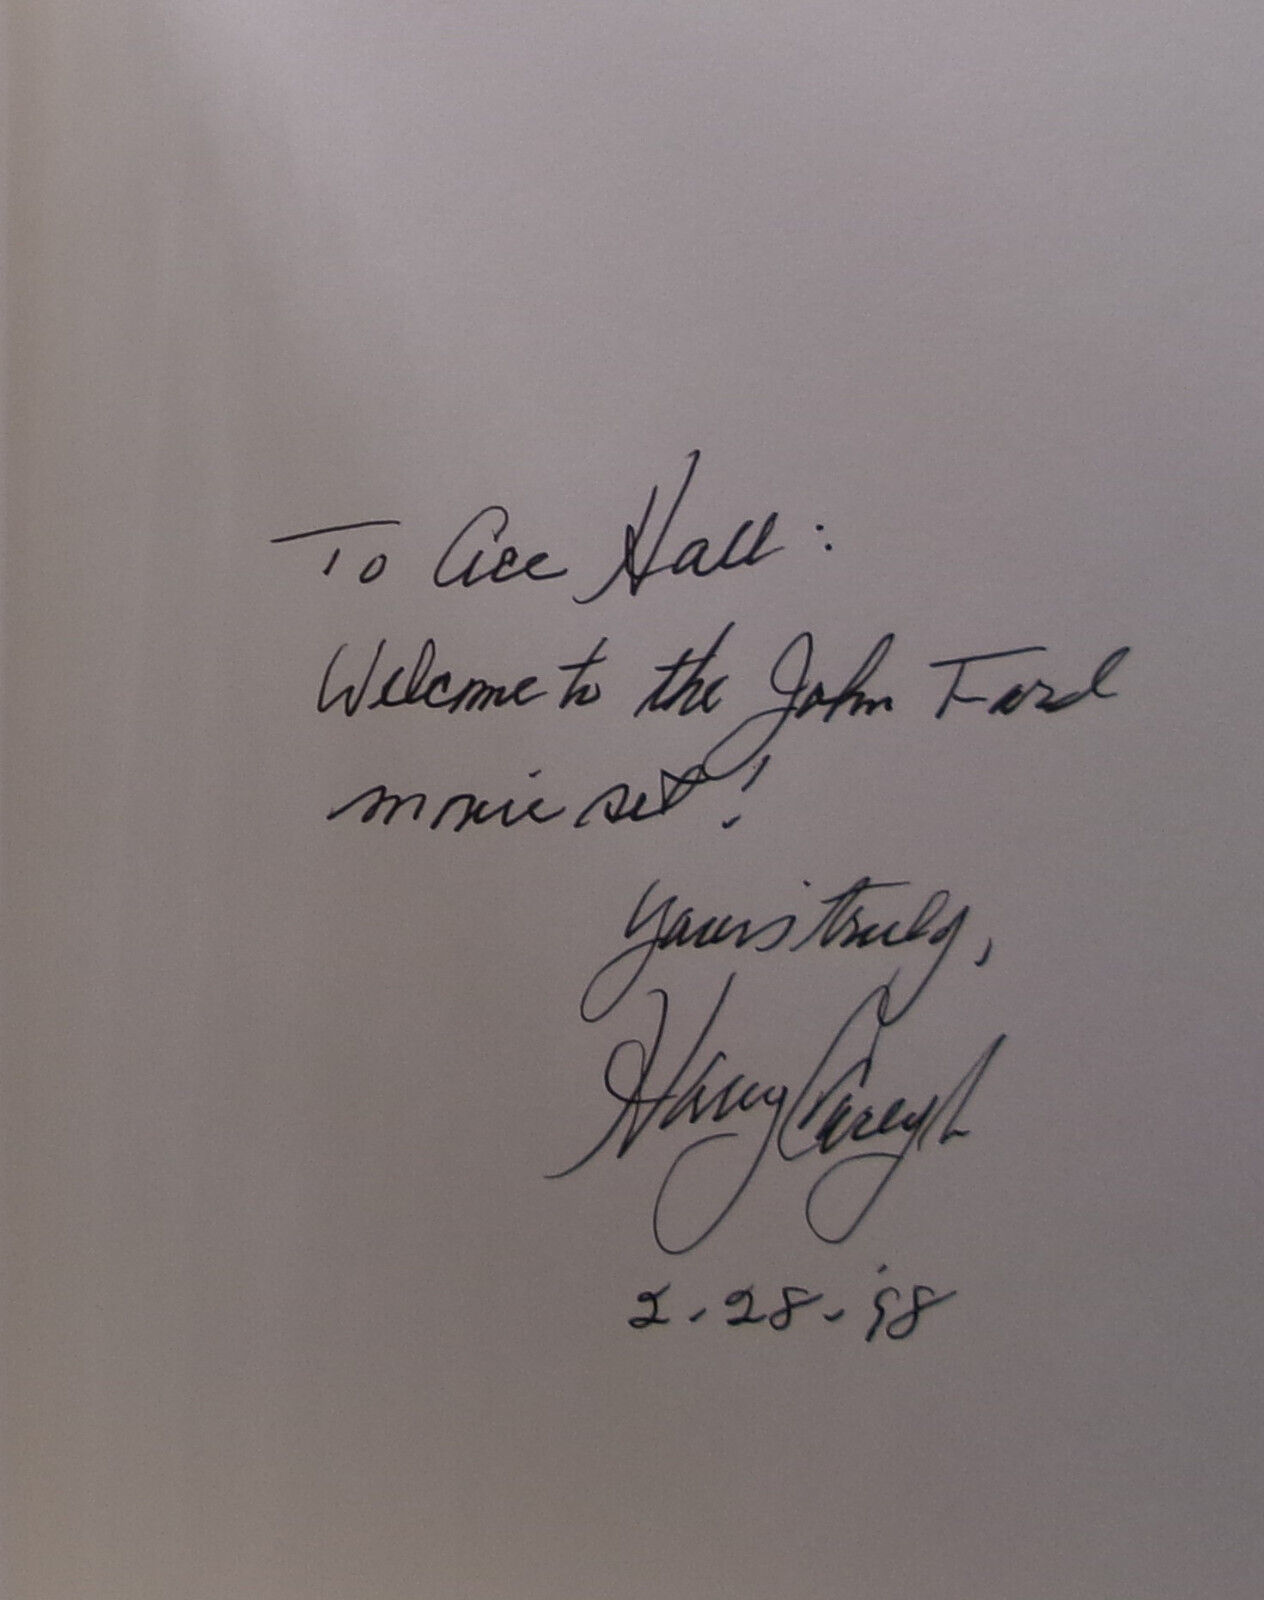 To Ace Hall:
Welcome to the John Ford
movie set!
Yours truly,
Harry Carey Jr
2.28.'98